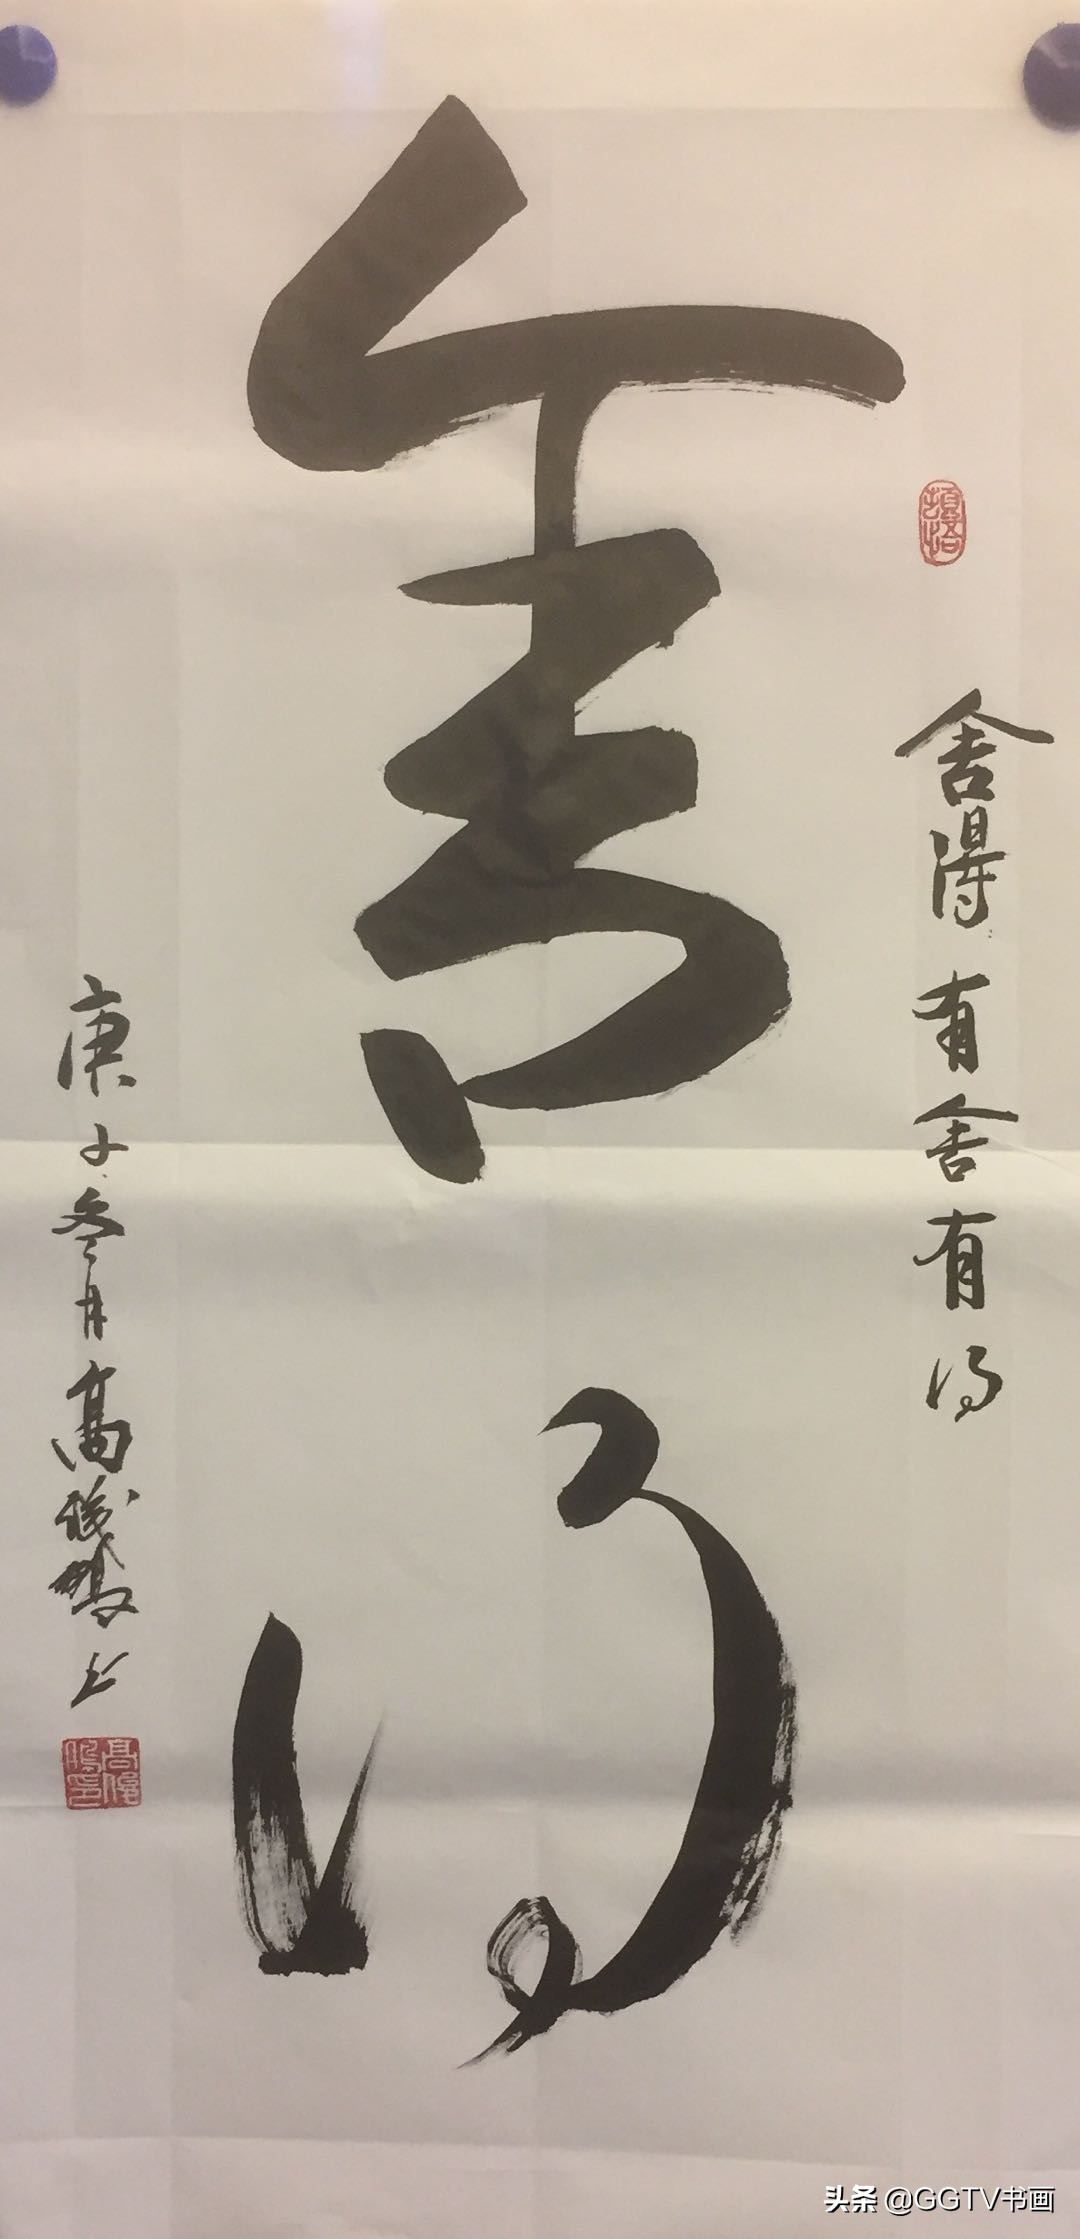 舍得
舍得 有舍有得
庚子冬月高俊鹏书
头条 @GGTV书画